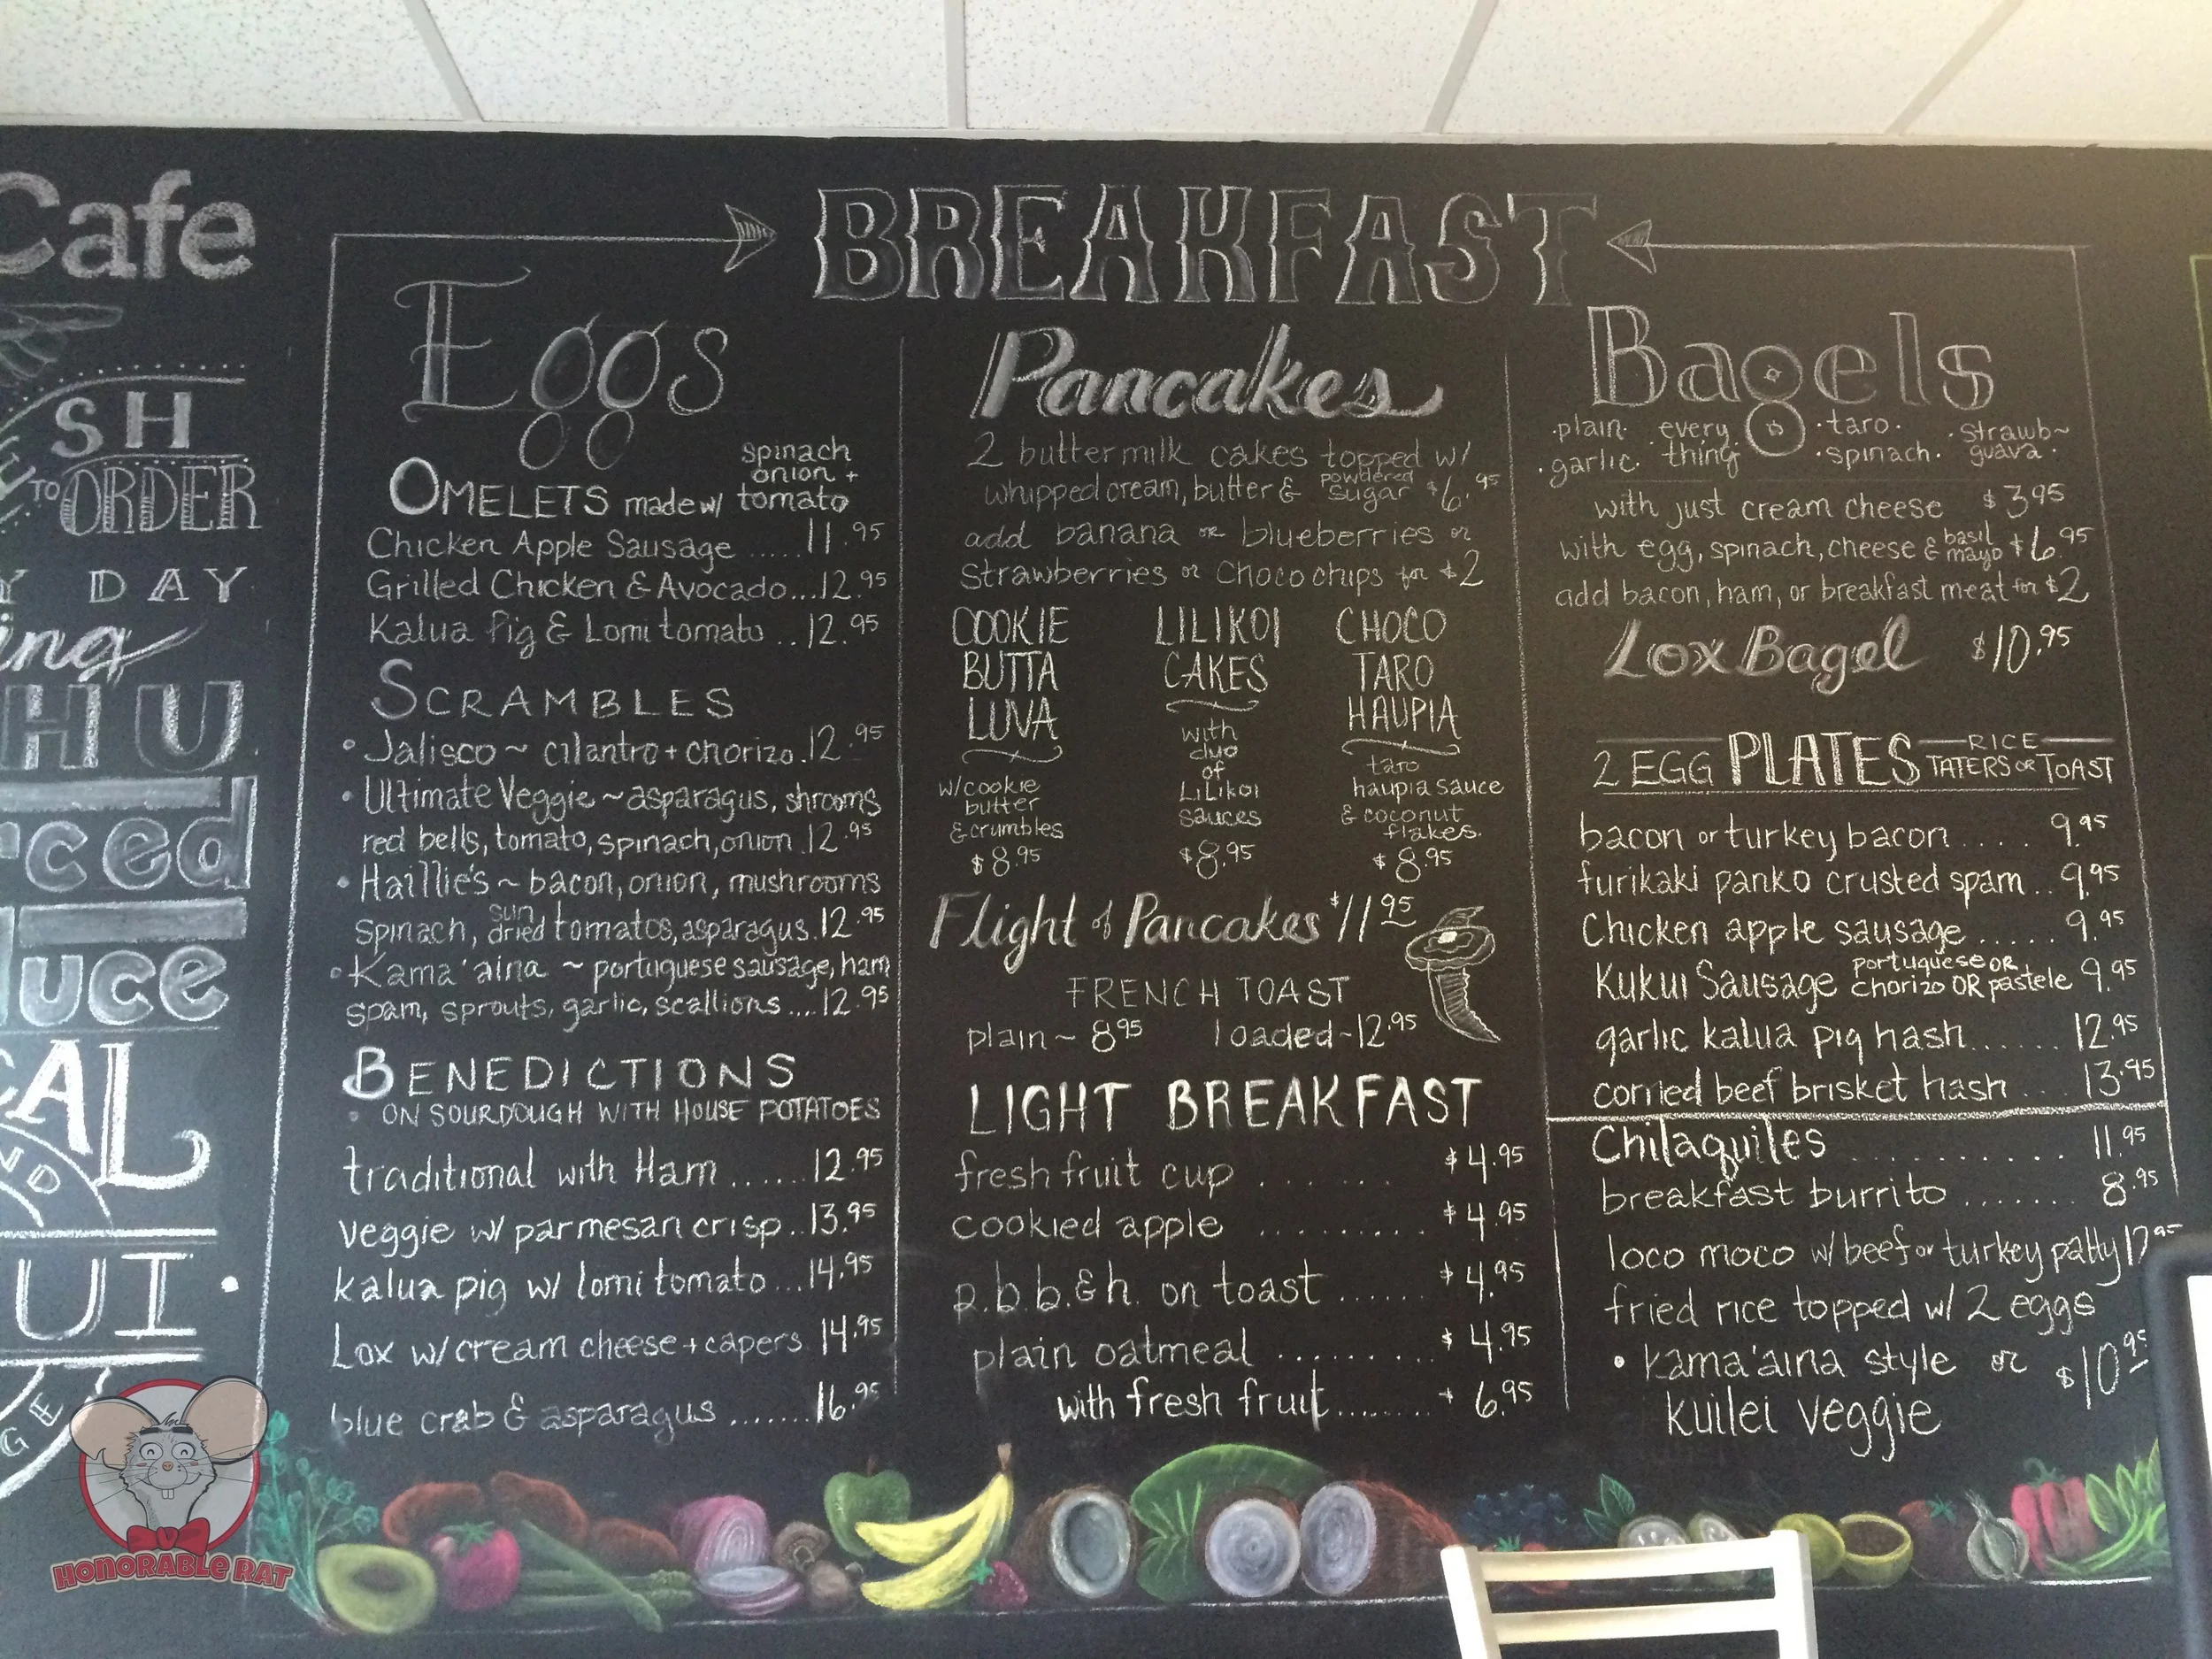 Cafe
SH
TO ORDER
Y DAY
ing
HU
rced
uce
CAL
ND
UI
GE
BREAKFAST
Eggs
OMELETS made w/ spinach onion + tomato
Chicken Apple Sausage .....11.95
Grilled Chicken & Avocado...12.95
Kalua Pig & Lomi tomato ..12.95
SCRAMBLES
• Jalisco ~ cilantro + chorizo.12.95
• Ultimate Veggie ~ asparagus, shrooms
red bells, tomato, spinach, onion.12.95
• Haillie's ~ bacon, onion, mushrooms
spinach, sun dried tomatos, asparagus.12.95
• Kama'aina ~ portuguese sausage, ham
spam, sprouts, garlic, scallions....12.95
BENEDICTIONS
• ON SOURDOUGH WITH HOUSE POTATOES
traditional with Ham ......12.95
veggie w/ parmesan crisp..13.95
kalua pig w/ lomi tomato...14.95
Lox w/ cream cheese + capers 14.95
blue crab & asparagus .......16.95
Pancakes
2 buttermilk cakes topped w/
whipped cream, butter & powdered sugar $6.95
add banana or blueberries or
strawberries or chocochips for $2
COOKIE
BUTTA
LUVA
w/ cookie
butter
& crumbles
$8.95
LILIKOI
CAKES
with
duo
of
LiLikoi
sauces
$8.95
CHOCO
TARO
HAUPIA
taro
haupia sauce
& coconut
flakes.
$8.95
Flight of Pancakes $11.95
FRENCH TOAST
plain ~ 8.95 loaded ~ 12.95
LIGHT BREAKFAST
fresh fruit cup ....... $4.95
cookied apple ......... $4.95
p.b.b.&h. on toast ...... $4.95
plain oatmeal ......... $4.95
with fresh fruit........ + 6.95
Bagels
•plain• every thing •taro• •strawb~ guava•
•garlic• •spinach•
with just cream cheese $3.95
with egg, spinach, cheese & basil mayo $6.95
add bacon, ham, or breakfast meat for $2
Lox Bagel $10.95
2 EGG PLATES RICE TATERS OR TOAST
bacon or turkey bacon..... 9.95
furikaki panko crusted spam..9.95
Chicken apple sausage..... 9.95
Kukui Sausage portuguese OR chorizo OR pastele 9.95
garlic kalua pig hash...... 12.95
corned beef brisket hash... 13.95
Chilaquiles .......... 11.95
breakfast burrito ....... 8.95
loco moco w/ beef or turkey patty 12.95
fried rice topped w/ 2 eggs
• kama'aina style or $10.95
kuilei veggie
HONORABLE RAT